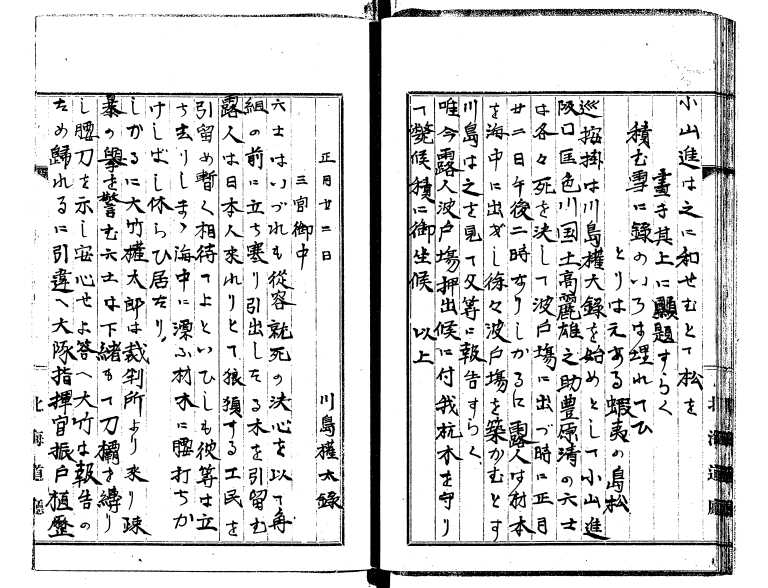 小山進は之に和せむとて松を
畫き其上に題すらく
積む雪に緑のいろは埋れてひ
とりはえある蝦夷の島松
巡按掛は川島權大録を始めとして小山進
阪口匡色川国士高麗雄之助豊原清の六士
は各々死を決して波戸塲に出づ時に正月
廿二日午後二時なりしかるに露人は材木
を海中に出だし徐々波戸塲を築かむとす
川島は之を見て又等に報告すらく
唯今露人波戸塲押出候に付我杭木を守り
て斃候積に御坐候 以上
北海道廳
正月廿二日 川島權大録
三官御中
六士はいづれも從容就死の決心を以て舟
組の前に立ち塞り引出したる木を引留む
露人は日本人來れりとて狼狽する工民を
引留め暫く相待てよといひしも彼等は立
ち去りしまゝ海中に漂ふ材木に腰打ちか
けしばし休らひ居たり
しかるに大竹權太郎は裁判所より來り疎
暴の擧を警む六士は下緒もて刀欛を縛り
し腰刀を示し安心せよ答へ大竹は報告の
ため歸れるに引違へ大隊指揮官振戸恒歴
北海道廳